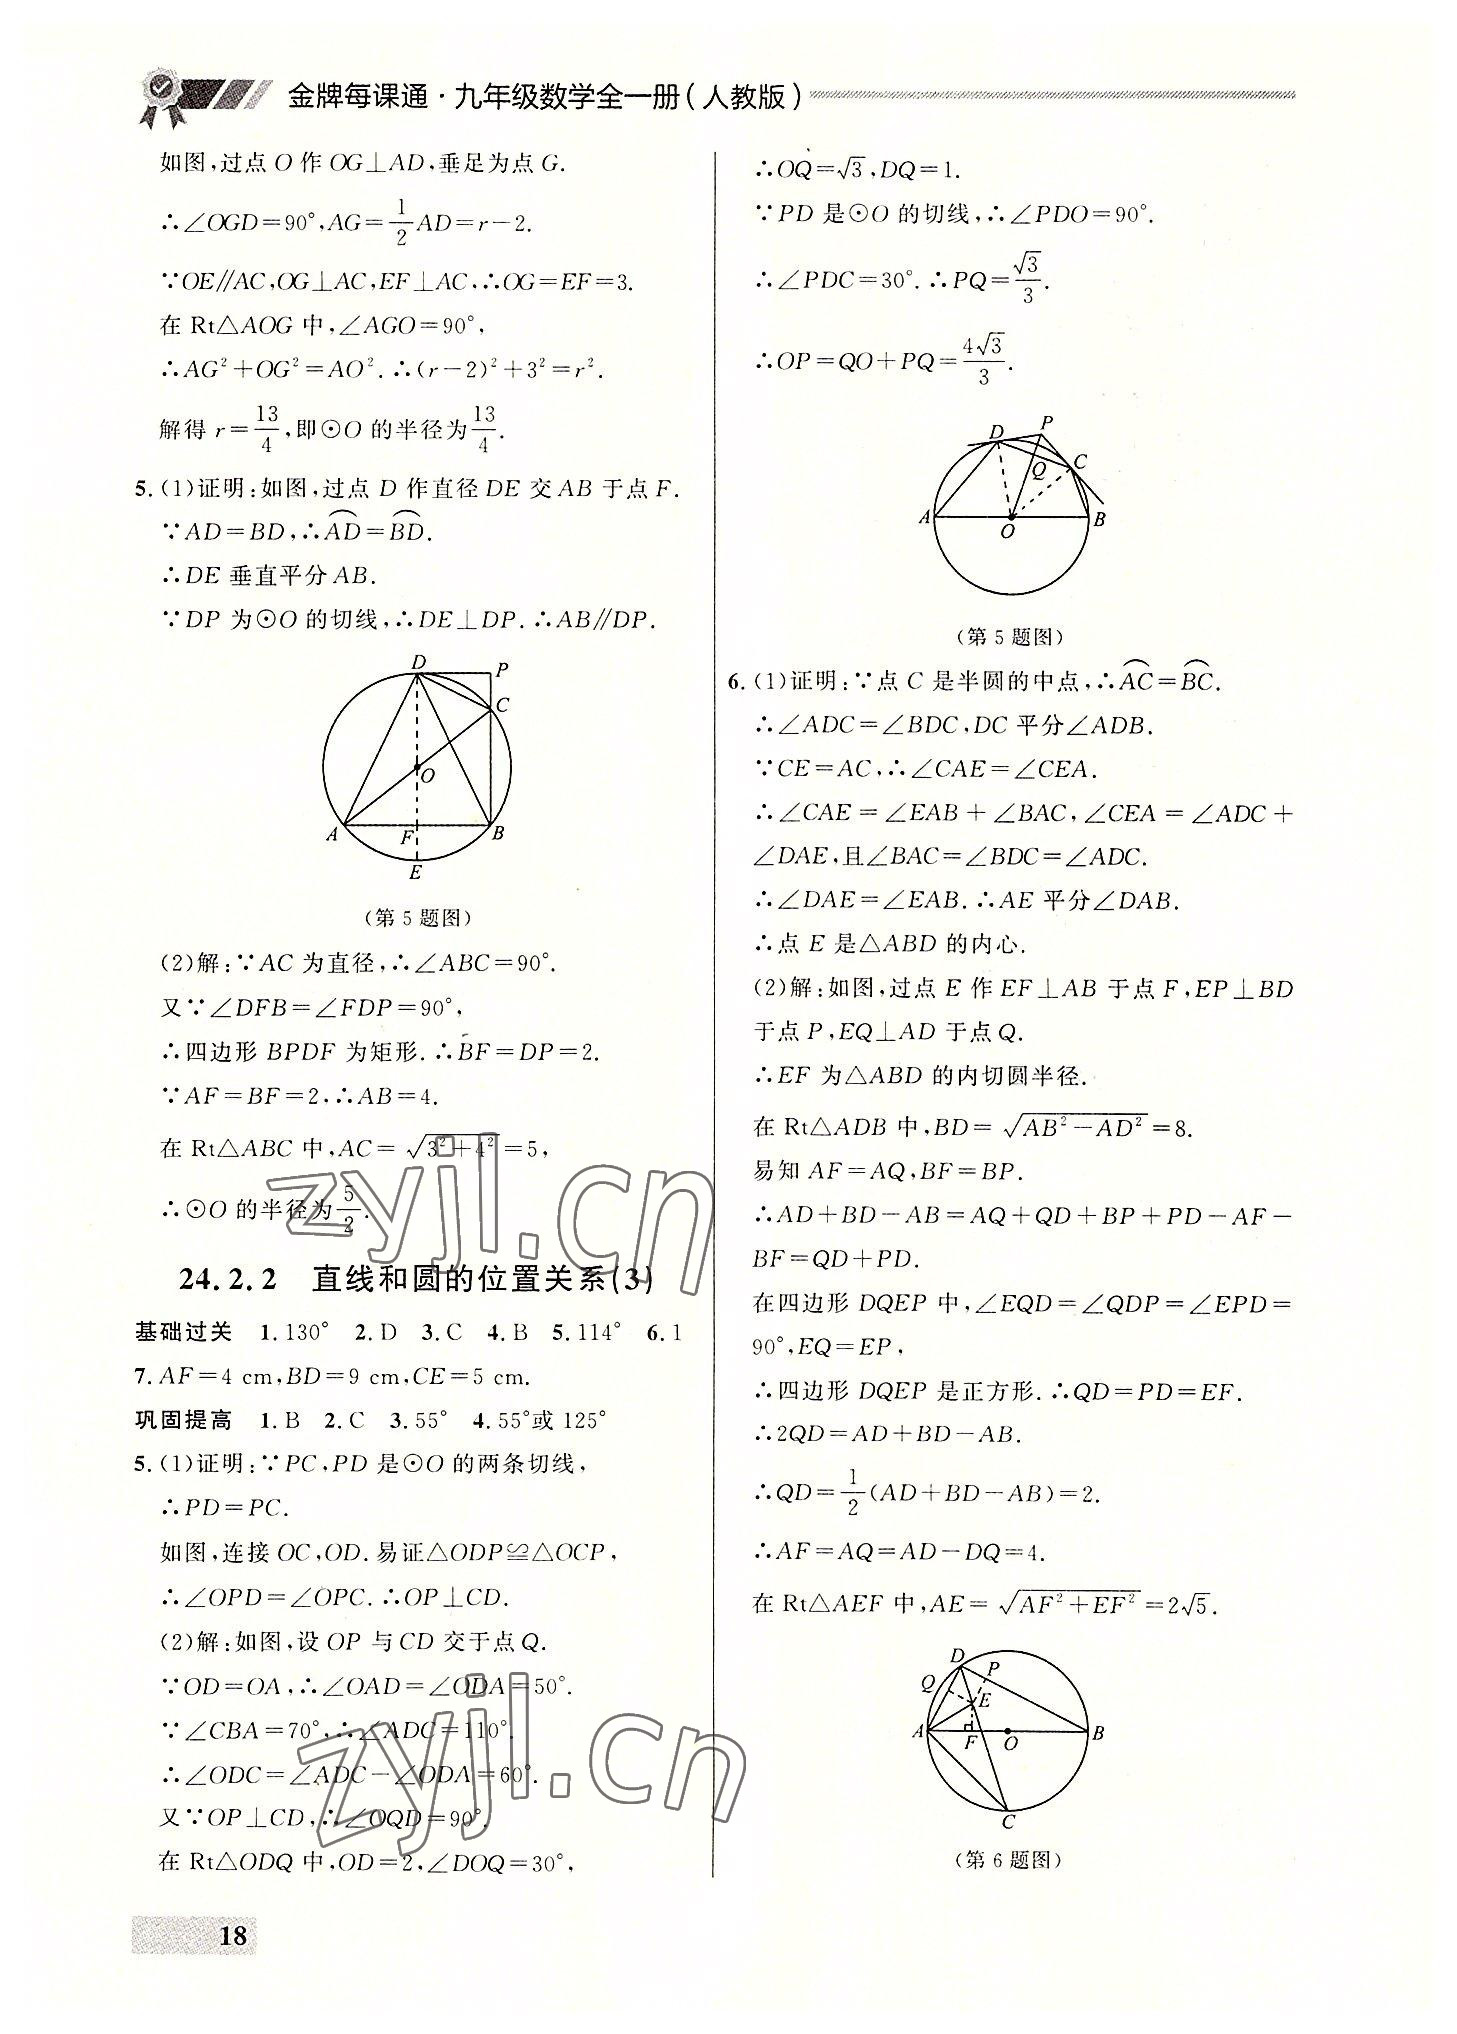 金牌每课通·九年级数学全一册(人教版)
如图,过点 O 作 OG⊥AD,垂足为点 G.
∴∠OGD=90°,AG=1/2AD=r-2.
∵OE∥AC,OG⊥AC,EF⊥AC,∴OG=EF=3.
在 Rt△AOG 中,∠AGO=90°,
∴AG²+OG²=AO².∴(r-2)²+3²=r².
解得 r=13/4,即⊙O 的半径为13/4.
5.(1)证明:如图,过点 D 作直径 DE 交 AB 于点 F.
∵AD=BD,∴AD⌒=BD⌒.
∴DE 垂直平分 AB.
∵DP 为⊙O 的切线,∴DE⊥DP.∴AB∥DP.
D
P
C
O
A
F
B
E
(第 5 题图)
(2)解:∵AC 为直径,∴∠ABC=90°.
又∵∠DFB=∠FDP=90°,
∴四边形 BPDF 为矩形.∴BF=DP=2.
∵AF=BF=2,∴AB=4.
在 Rt△ABC 中,AC=√(3²+4²)=5,
∴⊙O 的半径为5/2.
24.2.2 直线和圆的位置关系(3)
基础过关 1.130° 2.D 3.C 4.B 5.114° 6.1
7.AF=4 cm,BD=9 cm,CE=5 cm.
巩固提高 1.B 2.C 3.55° 4.55°或 125°
5.(1)证明:∵PC,PD 是⊙O 的两条切线,
∴PD=PC.
如图,连接 OC,OD.易证△ODP≌△OCP,
∴∠OPD=∠OPC.∴OP⊥CD.
(2)解:如图,设 OP 与 CD 交于点 Q.
∵OD=OA,∴∠OAD=∠ODA=50°.
∵∠CBA=70°,∴∠ADC=110°.
∴∠ODC=∠ADC-∠ODA=60°.
又∵OP⊥CD,∴∠OQD=90°.
在 Rt△ODQ 中,OD=2,∠DOQ=30°,
∴OQ=√3,DQ=1.
∵PD 是⊙O 的切线,∴∠PDO=90°.
∴∠PDC=30°.∴PQ=√3/3.
∴OP=QO+PQ=4√3/3.
D
P
Q
C
A
O
B
(第 5 题图)
6.(1)证明:∵点 C 是半圆的中点,∴AC⌒=BC⌒.
∴∠ADC=∠BDC,DC 平分∠ADB.
∵CE=AC,∴∠CAE=∠CEA.
∴∠CAE=∠EAB+∠BAC,∠CEA=∠ADC+
∠DAE,且∠BAC=∠BDC=∠ADC.
∴∠DAE=∠EAB.∴AE 平分∠DAB.
∴点 E 是△ABD 的内心.
(2)解:如图,过点 E 作 EF⊥AB 于点 F,EP⊥BD
于点 P,EQ⊥AD 于点 Q.
∴EF 为△ABD 的内切圆半径.
在 Rt△ADB 中,BD=√(AB²-AD²)=8.
易知 AF=AQ,BF=BP.
∴AD+BD-AB=AQ+QD+BP+PD-AF-
BF=QD+PD.
在四边形 DQEP 中,∠EQD=∠QDP=∠EPD=
90°,EQ=EP,
∴四边形 DQEP 是正方形.∴QD=PD=EF.
∴2QD=AD+BD-AB.
∴QD=1/2(AD+BD-AB)=2.
∴AF=AQ=AD-DQ=4.
在 Rt△AEF 中,AE=√(AF²+EF²)=2√5.
D
P
Q
E
A
F
O
B
C
(第 6 题图)
zyjl.cn
zyjl.cn
18